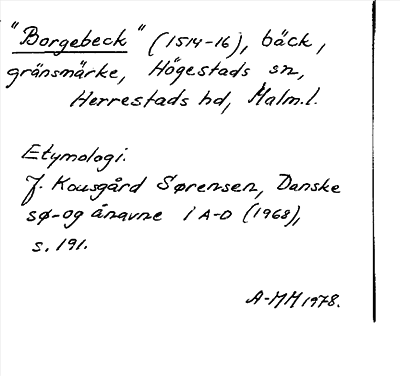 "Borgebeck" (1514-16), bäck,
gränsmärke, Högestads sn,
Herrestads hd, Malm.l.
Etymologi.
J. Kousgård Sørensen, Danske
sø- og ånavne 1 A-D (1968),
s. 191.
A-MM 1978.